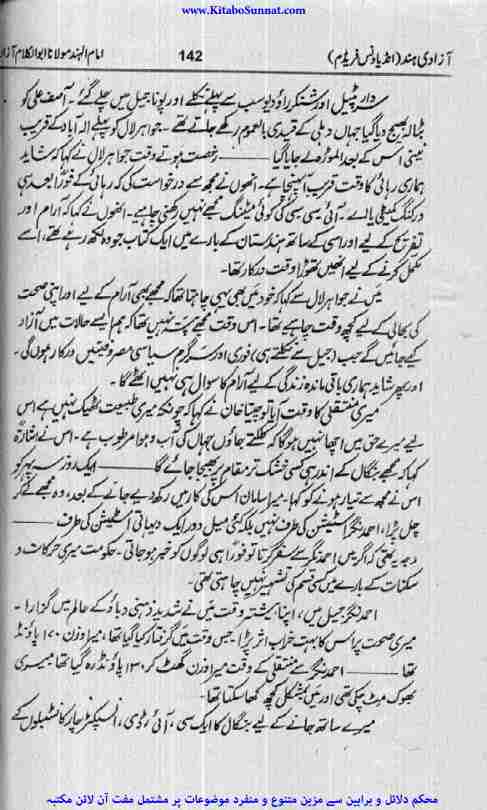 www.KitaboSunnat.com
آزادی ہند (انڈیا ونس فریڈم) 142 امام الہند مولانا ابوالکلام آزاد
سردار پٹیل اور شنکر راؤ دیو سب سے پہلے نکلے اور پونا جیل میں چلے گئے۔ آصف علی کو
بٹالہ بھیج دیا گیا جہاں دہلی کے قیدی بالعموم رکھے جاتے تھے۔ جواہر لال کو پہلے الہ آباد کے قریب
نینی اس کے بعد الموڑہ لے جایا گیا ——— رخصت ہوتے وقت جواہر لال نے کہا کہ شاید
ہماری رہائی کا وقت قریب آ پہنچا ہے۔ انھوں نے مجھ سے درخواست کی کہ رہائی کے فوراً بعد ہی
ورکنگ کمیٹی یا اے۔ آئی سی سی کی کوئی میٹنگ مجھے نہیں رکھنی چاہیے۔ انھوں نے کہا کہ آرام اور
تفریح کے لیے اور اسی کے ساتھ ہندستان کے بارے میں ایک کتاب جو وہ لکھ رہے تھے، اسے
مکمل کرنے کے لیے انھیں تھوڑا وقت درکار تھا۔
میں نے جواہر لال سے کہا کہ خود میں بھی یہی چاہتا تھا کہ مجھے بھی آرام کے لیے اور اپنی صحت
کی بحالی کے لیے کچھ وقت چاہیے تھا۔ اس وقت مجھے پتہ نہیں تھا کہ ہم ایسے حالات میں آزاد
کیے جائیں گے جب (جیل سے نکلتے ہی) فوری اور سرگرم سیاسی مصروفیتیں درکار ہوں گی۔
اور پھر شاید ہماری باقی ماندہ زندگی کے لیے آرام کا سوال ہی نہیں اٹھے گا۔
میری منتقلی کا وقت آیا تو چیتا خان نے کہا کہ چونکہ میری طبیعت ٹھیک نہیں ہے اس
لیے میرے حق میں اچھا نہیں ہوگا کہ کلکتے جاؤں جہاں کی آب و ہوا مرطوب ہے۔ اس نے اشارۃً
کہا کہ مجھے بنگال کے اندر ہی کسی خشک تر مقام پر بھیجا جائے گا ——— ایک روز سہ پہر کو
اس نے مجھ سے تیار ہونے کو کہا۔ میرا سامان اس کی کار میں رکھ دیے جانے کے بعد، وہ مجھے لے کر
چل پڑا، احمد نگر اسٹیشن کی طرف نہیں بلکہ کئی میل دور ایک دیہاتی اسٹیشن کی طرف ———
وجہ یہ تھی کہ اگر میں احمد نگر سے سفر کرتا تو فوراً ہی لوگوں کو خبر ہو جاتی۔ حکومت میری حرکات و
سکنات کے بارے میں کسی قسم کی تشہیر نہیں چاہتی تھی۔
احمد نگر جیل میں، اپنا بیشتر وقت میں نے شدید ذہنی دباؤ کے عالم میں گزارا۔
میری صحت پر اس کا بہت خراب اثر پڑا۔ جس وقت میں گرفتار کیا گیا تھا، میرا وزن ۱۷۰ پاؤنڈ
تھا ——— احمد نگر سے منتقلی کے وقت میرا وزن گھٹ کر ۱۳۰ پاؤنڈ رہ گیا تھا میری
بھوک مٹ چکی تھی اور میں بمشکل کچھ کھا سکتا تھا۔
میرے ساتھ جانے کے لیے بنگال کا ایک سی، آئی، ڈی، انسپکٹر چار کانسٹبلوں کے
محکم دلائل و براہین سے مزین متنوع و منفرد موضوعات پر مشتمل مفت آن لائن مکتبہ